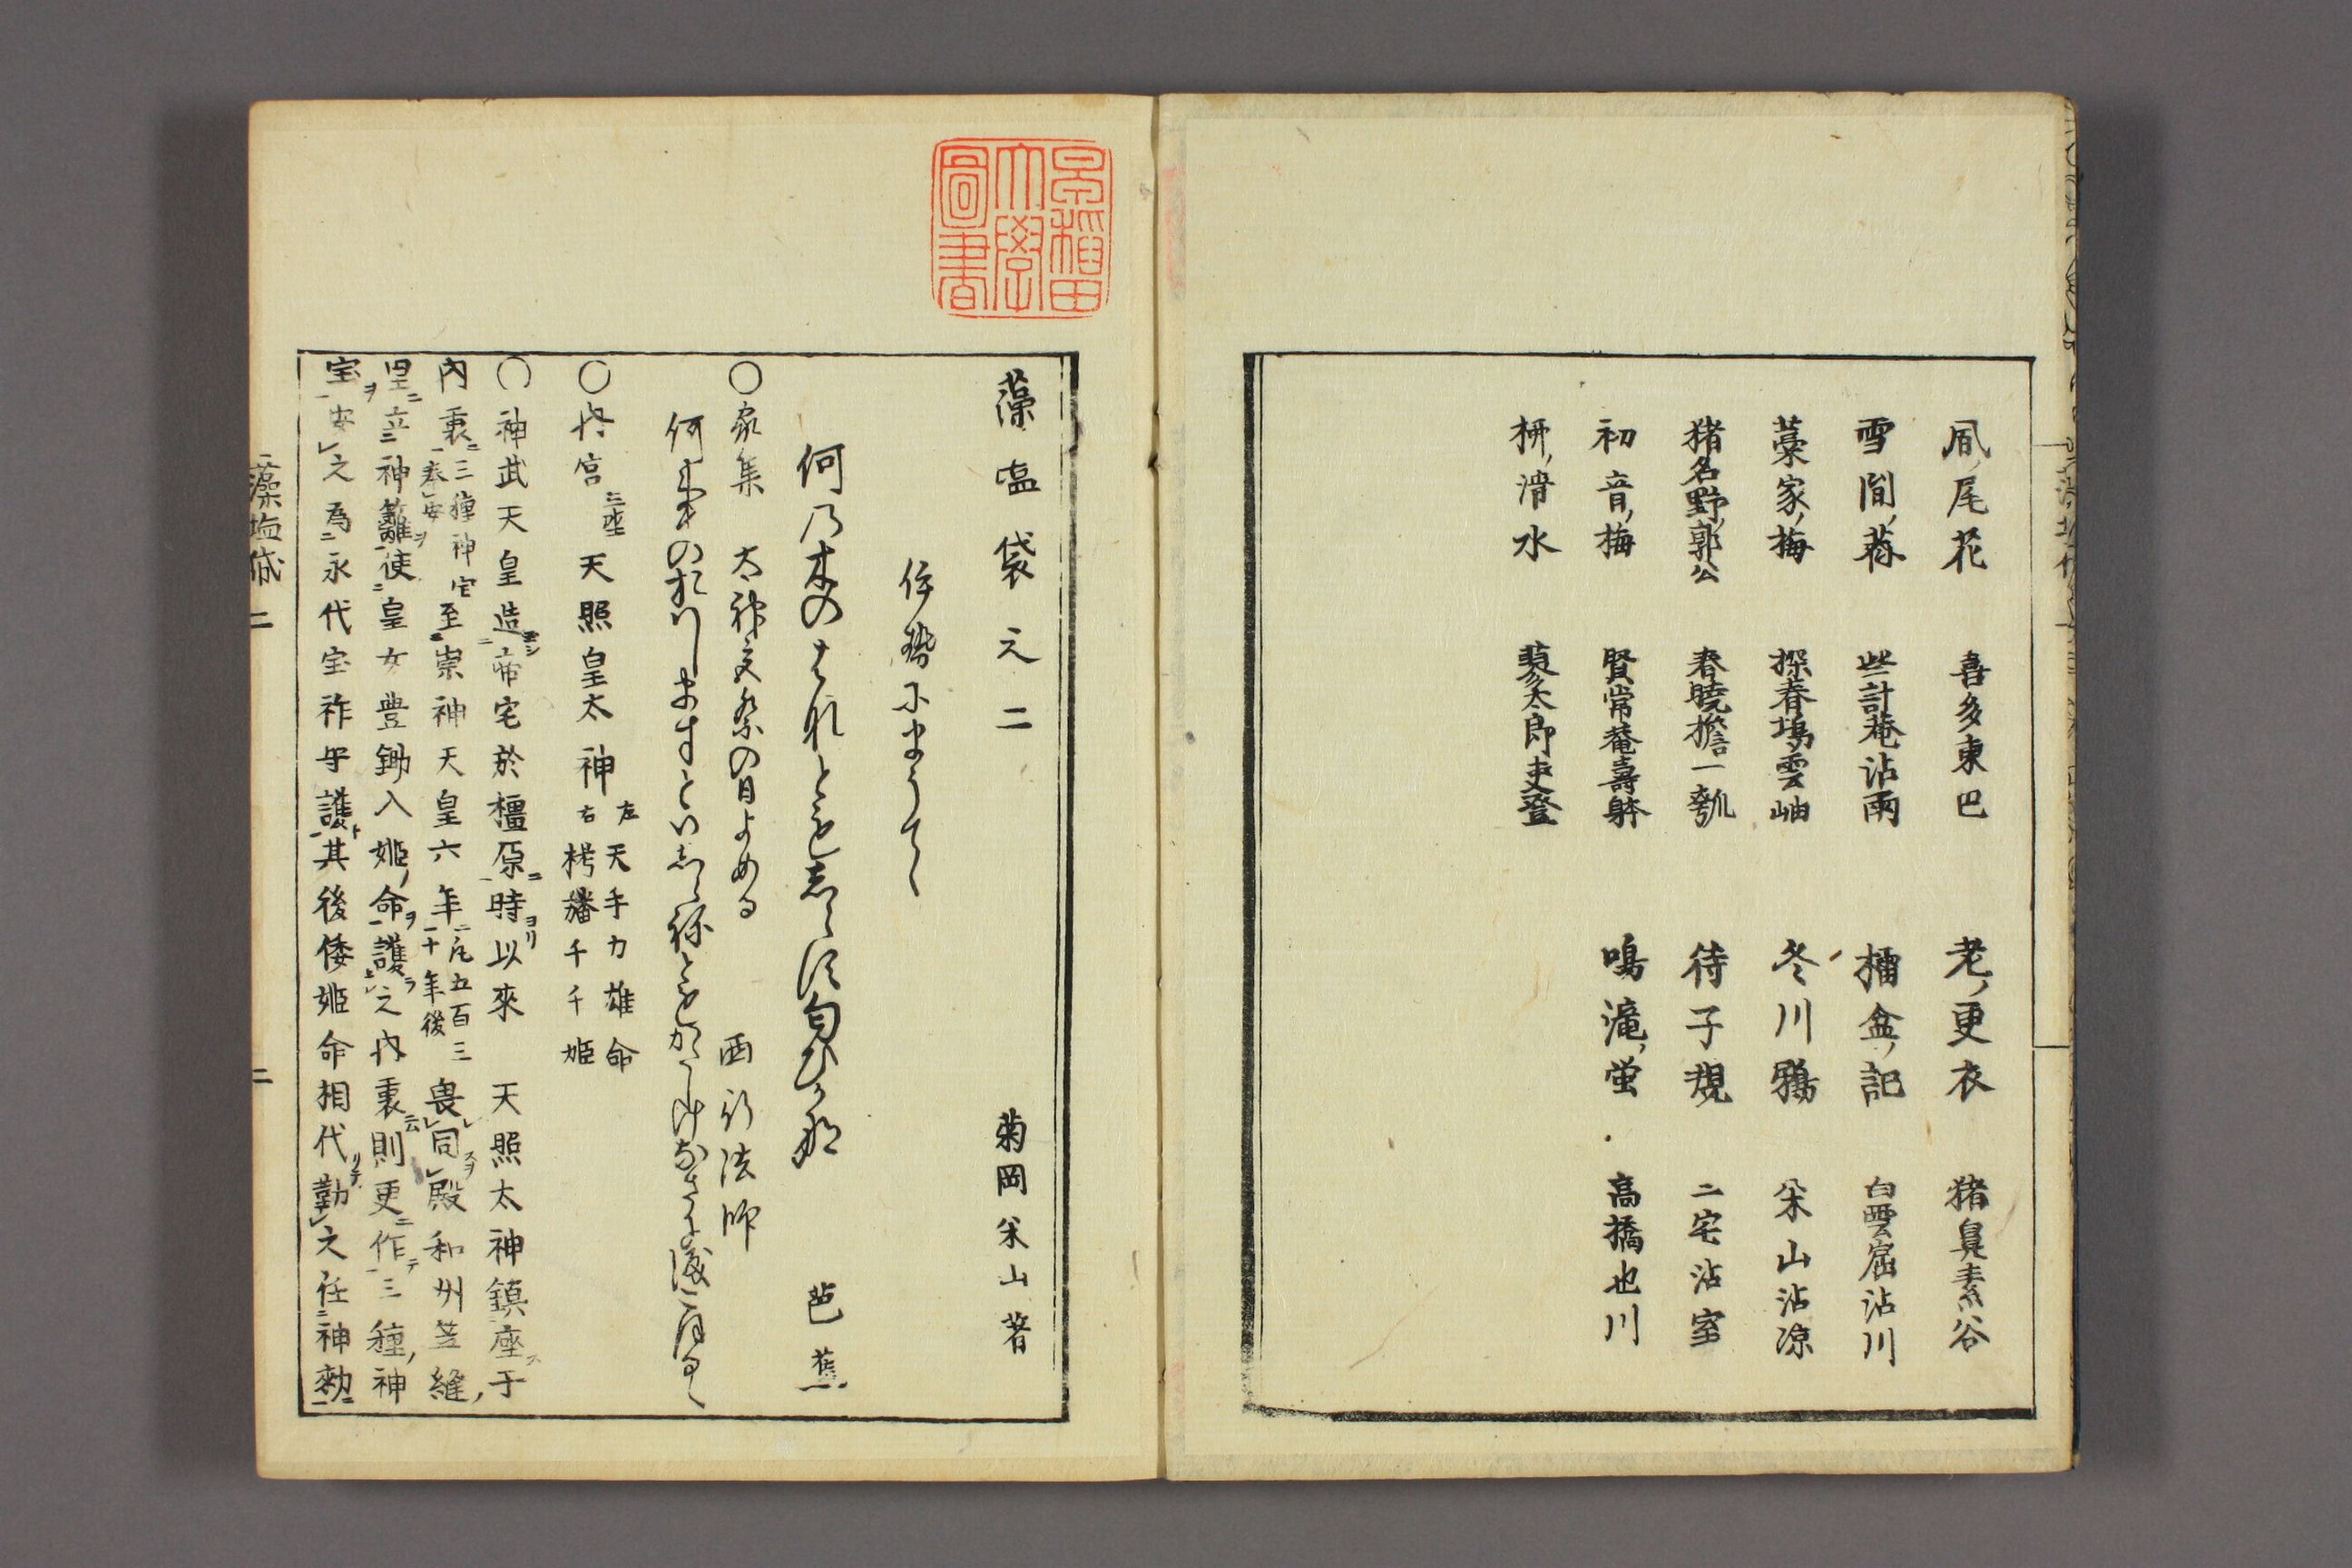 凩ノ尾花 喜多東巴
雪間ノ蕣 些計菴沾雨
藁家ノ梅 探春塢雲岫
猪名野ノ郭公 春暁擔一瓠
初音ノ梅 賢常菴壽躰
枡ノ滑水 蓼太郎吏登
老ノ更衣 猪鼻素谷
擂盆ノ記 白雲窟沾川
冬川鴉 米山沾凉
待子規 二宅沾室
鳴滝ノ蛍 高橋也川
早稲田大學圖書
藻塩袋之二 菊岡米山著
伊勢にまうてゝ
何の木の花とはしらす匂ひ哉 芭蕉
○家集 太神宮祭の日よめる 西行法師
何事のおはしますといしらねともかたしけなさに涙こほるゝ
○内宮 三座 天照皇太神 左天手力雄命 右栲幡千千姫
○神武天皇造帝宅於橿原時ヨリ以來 天照太神鎮座于
内裏三種神宝奉安至崇神天皇六年凡五百三十年後畏同殿和州笠縫ノ
里ニ立神籬使皇女豊鋤入姫ノ命護之内裏則更作三種ノ神
宝安之為永代宝祚守護其後倭姫命相代勤之任神勅
藻塩袋 二 二